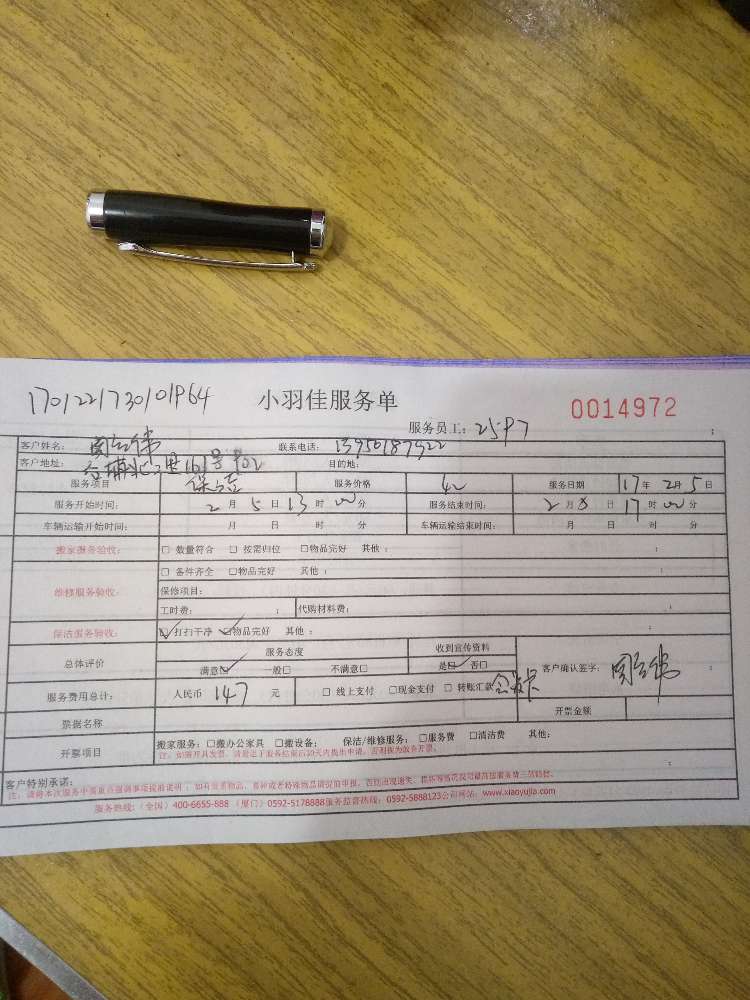 1701221730101964 小羽佳服务单 0014972
服务员工：
客户姓名： 联系电话：
客户地址： 目的地：
服务项目 保洁 服务价格 服务日期 17年2月5日
服务开始时间： 2月5日13时00分 服务结束时间： 2月5日17时00分
车辆运输开始时间： 月 日 时 分 车辆运输结束时间： 月 日 时 分
搬家服务验收： □ 数量符合 □ 按需归位 □物品完好 其他：
维修服务验收： □ 备件齐全 □物品完好 其他：
保修项目：
工时费： ； 代购材料费：
保洁服务验收： ☑打扫干净 ☑物品完好 其他：
总体评价 服务态度 收到宣传资料
满意☑ 一般□ 不满意□ 是☑ 否□ 客户确认签字：
服务费用总计： 人民币 147 元 □ 线上支付 □现金支付 □ 转账汇款 会员卡
票据名称 开票金额
开票项目 搬家服务：□搬办公家具 □搬设备； 保洁/维修服务：□服务费 □清洁费 其他：
客户特别承诺：
服务热线：（全国）400-6655-888 （厦门）0592-5178888服务监督热线：0592-5888123公司网站：www.xiaoyujia.com